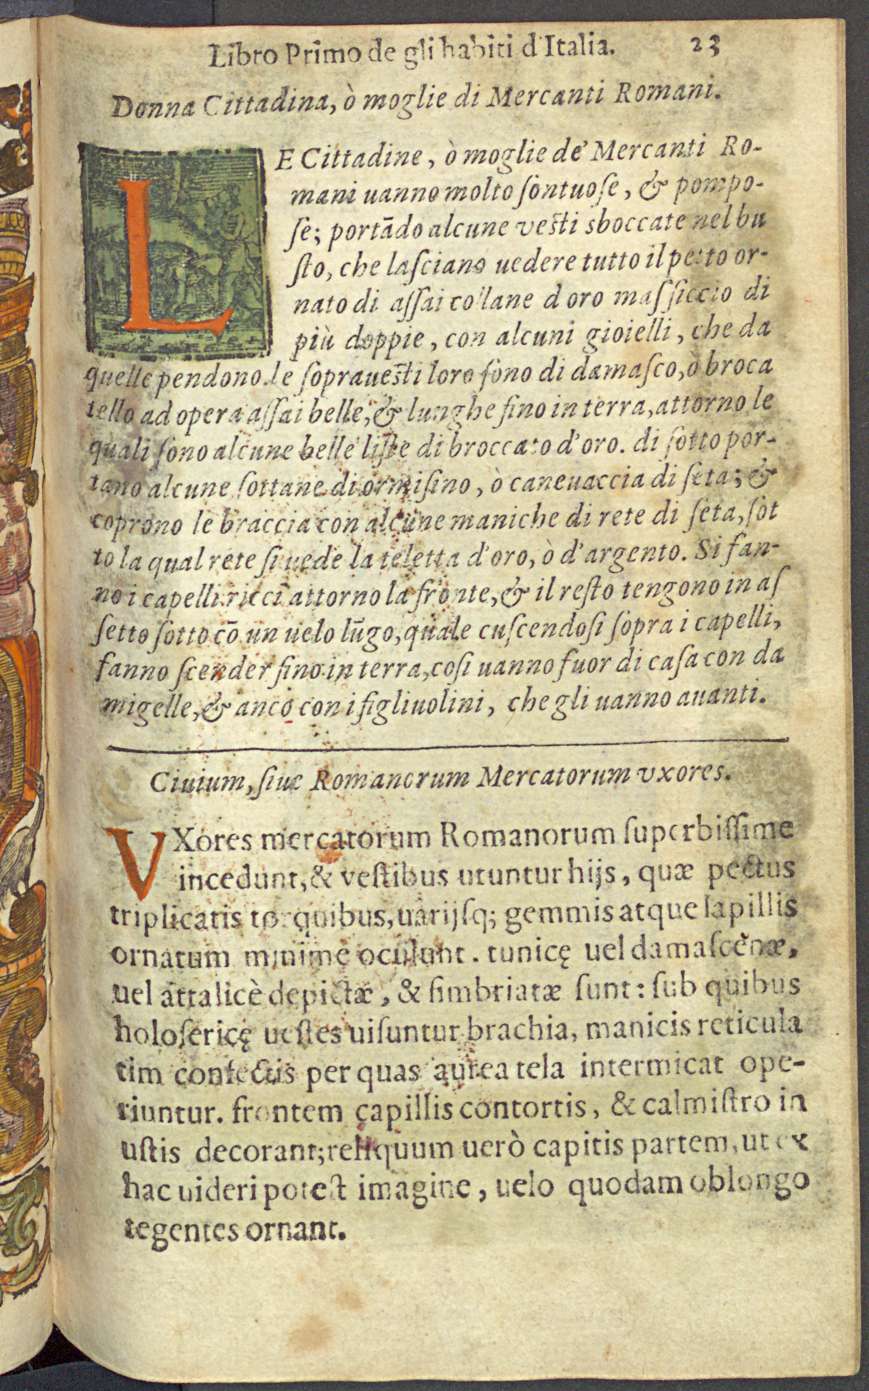 Libro Primo de gli habiti d'Italia. 23
Donna Cittadina, ò moglie di Mercanti Romani.
LE Cittadine, ò moglie de' Mercanti Ro-
mani uanno molto sontuose, & pompo-
se; portãdo alcune vesti sboccate nel bu
sto, che lasciano uedere tutto il petto or-
nato di assai collane d oro massiccio di
più doppie, con alcuni gioielli, che da
quelle pendono. le soprauesti loro sono di damasco, ò broca
tello ad opera assai belle, & lunghe fino in terra, attorno le
quali sono alcune belle liste di broccato d'oro. di sotto por-
tano alcune sottane di ormisino, ò caneuaccia di seta; &
coprono le braccia con alcune maniche di rete di seta, sot
to la qual rete si uede la teletta d'oro, ò d'argento. Si fan-
no i capelli ricci attorno la fronte, & il resto tengono in as
setto sotto cõ un uelo lũgo, quale cuscendosi sopra i capelli,
fanno scender fino in terra, cosi uanno fuor di casa con da
migelle, & anco con i figliuolini, che gli uanno auanti.
Ciuium, siue Romanorum Mercatorum vxores.
VXores mercatorum Romanorum superbissime
incedunt, & vestibus utuntur hijs, quæ pectus
triplicatis torquibus, uarijsq; gemmis atque lapillis
ornatum minimè oculunt. tunicę uel damascenæ,
uel attalicè depictæ, & fimbriatæ sunt: sub quibus
holosericę uestes uisuntur brachia, manicis reticula
tim confectis per quas aurea tela intermicat ope-
riuntur. frontem capillis contortis, & calmistro in
ustis decorant; reliquum uerò capitis partem, ut ex
hac uideri potest imagine, uelo quodam oblongo
tegentes ornant.